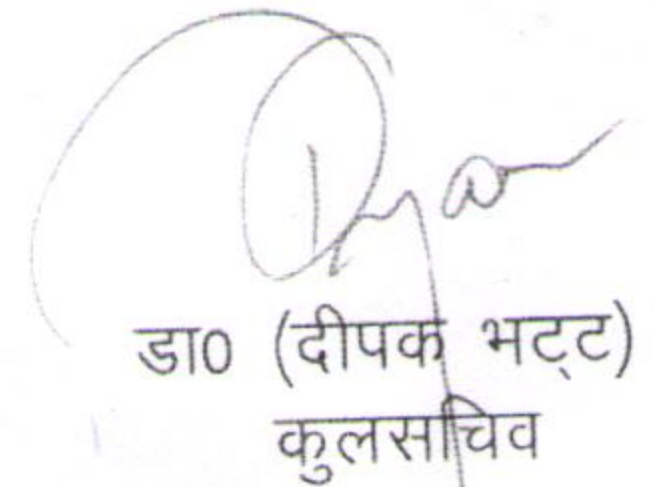 डा0 (दीपक भट्ट)
कुलसचिव